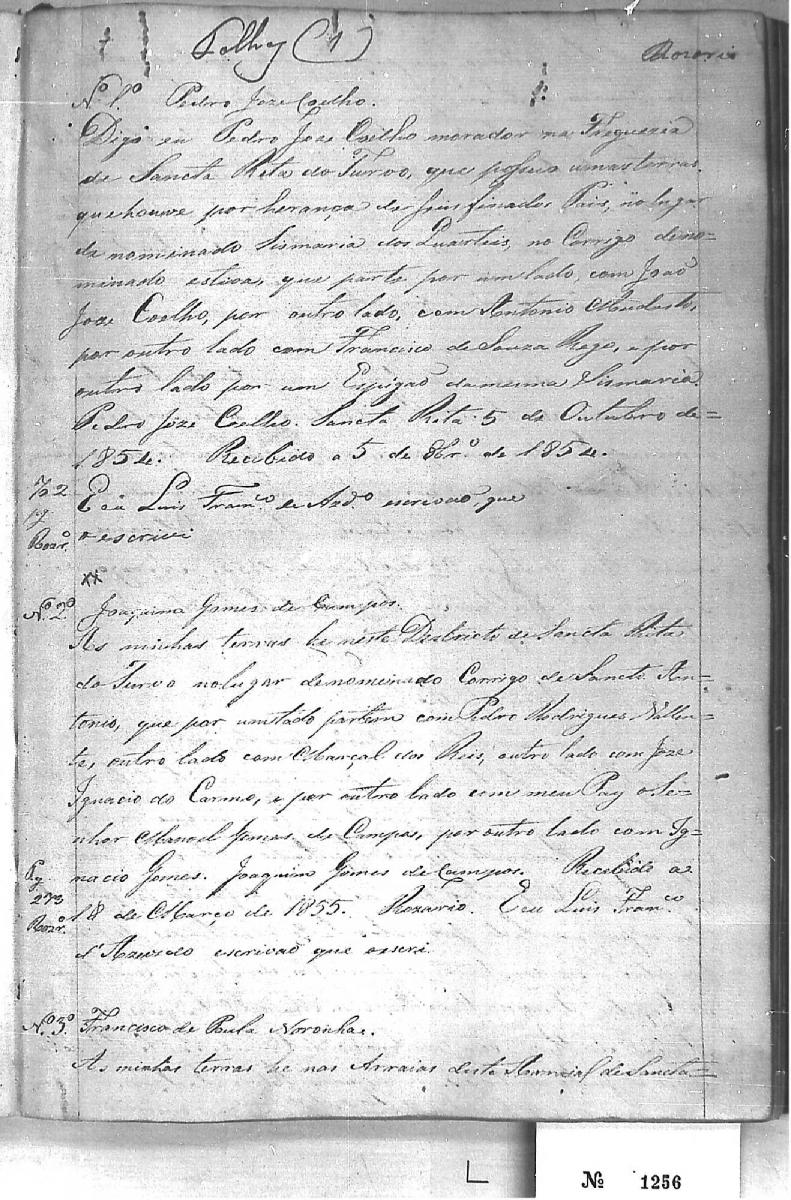 Folhas (1)
Rozario
Nº 1º Pedro Joze Coelho.
Digo eu Pedro Joze Coelho morador na Freguezia
de Sancta Rita do Turvo, que possuo umas terras,
que houve por herança de seus finados Pais, no lugar
de nomeinado Sismaria dos Quarteis, no Corrigo deno=
minado estiva, que parte por um lado, com João
Joze Coelho, por outro lado, com Antonio Modesto,
por outro lado com Francisco de Souza Rego, e por
outro lado por um Espigão da mesma Sismaria.
Pedro Joze Coelho. Sancta Rita 5 de Outubro de=
1854. Recibido a 5 de 8brº. de 1854.
E eu Luis Framcº de Azdº escrivão, que
o escrivi
XX
Nº 2º Joaquina Gomes de Campos.
As minhas terras he neste Destricto de Sancta Rita
do Turvo no lugar denomeinado Corrigo de Sancto An=
tonio, que por um lado partem com Pedro Rodrigues Vallen=
te, outro lado com Marçal dos Reis, outro lado com Joze
Ignacio do Carmo, e por outro lado com meu Pay o Se=
nhor Manoel Gomes de Campos, por outro lado com Ig=
nacio Gomes. Joaquim Gomes de Campos. Recibido a
18 de Março de 1855. Rozario. E eu Luis Framcº
d'Azevedo escrivão que o escri.
Pg
273
Rozrº.
Nº 3º Francisco de Paula Noronha.
As minhas terras he nas Arraias deste Arraial de Sancta=
Nº 1256